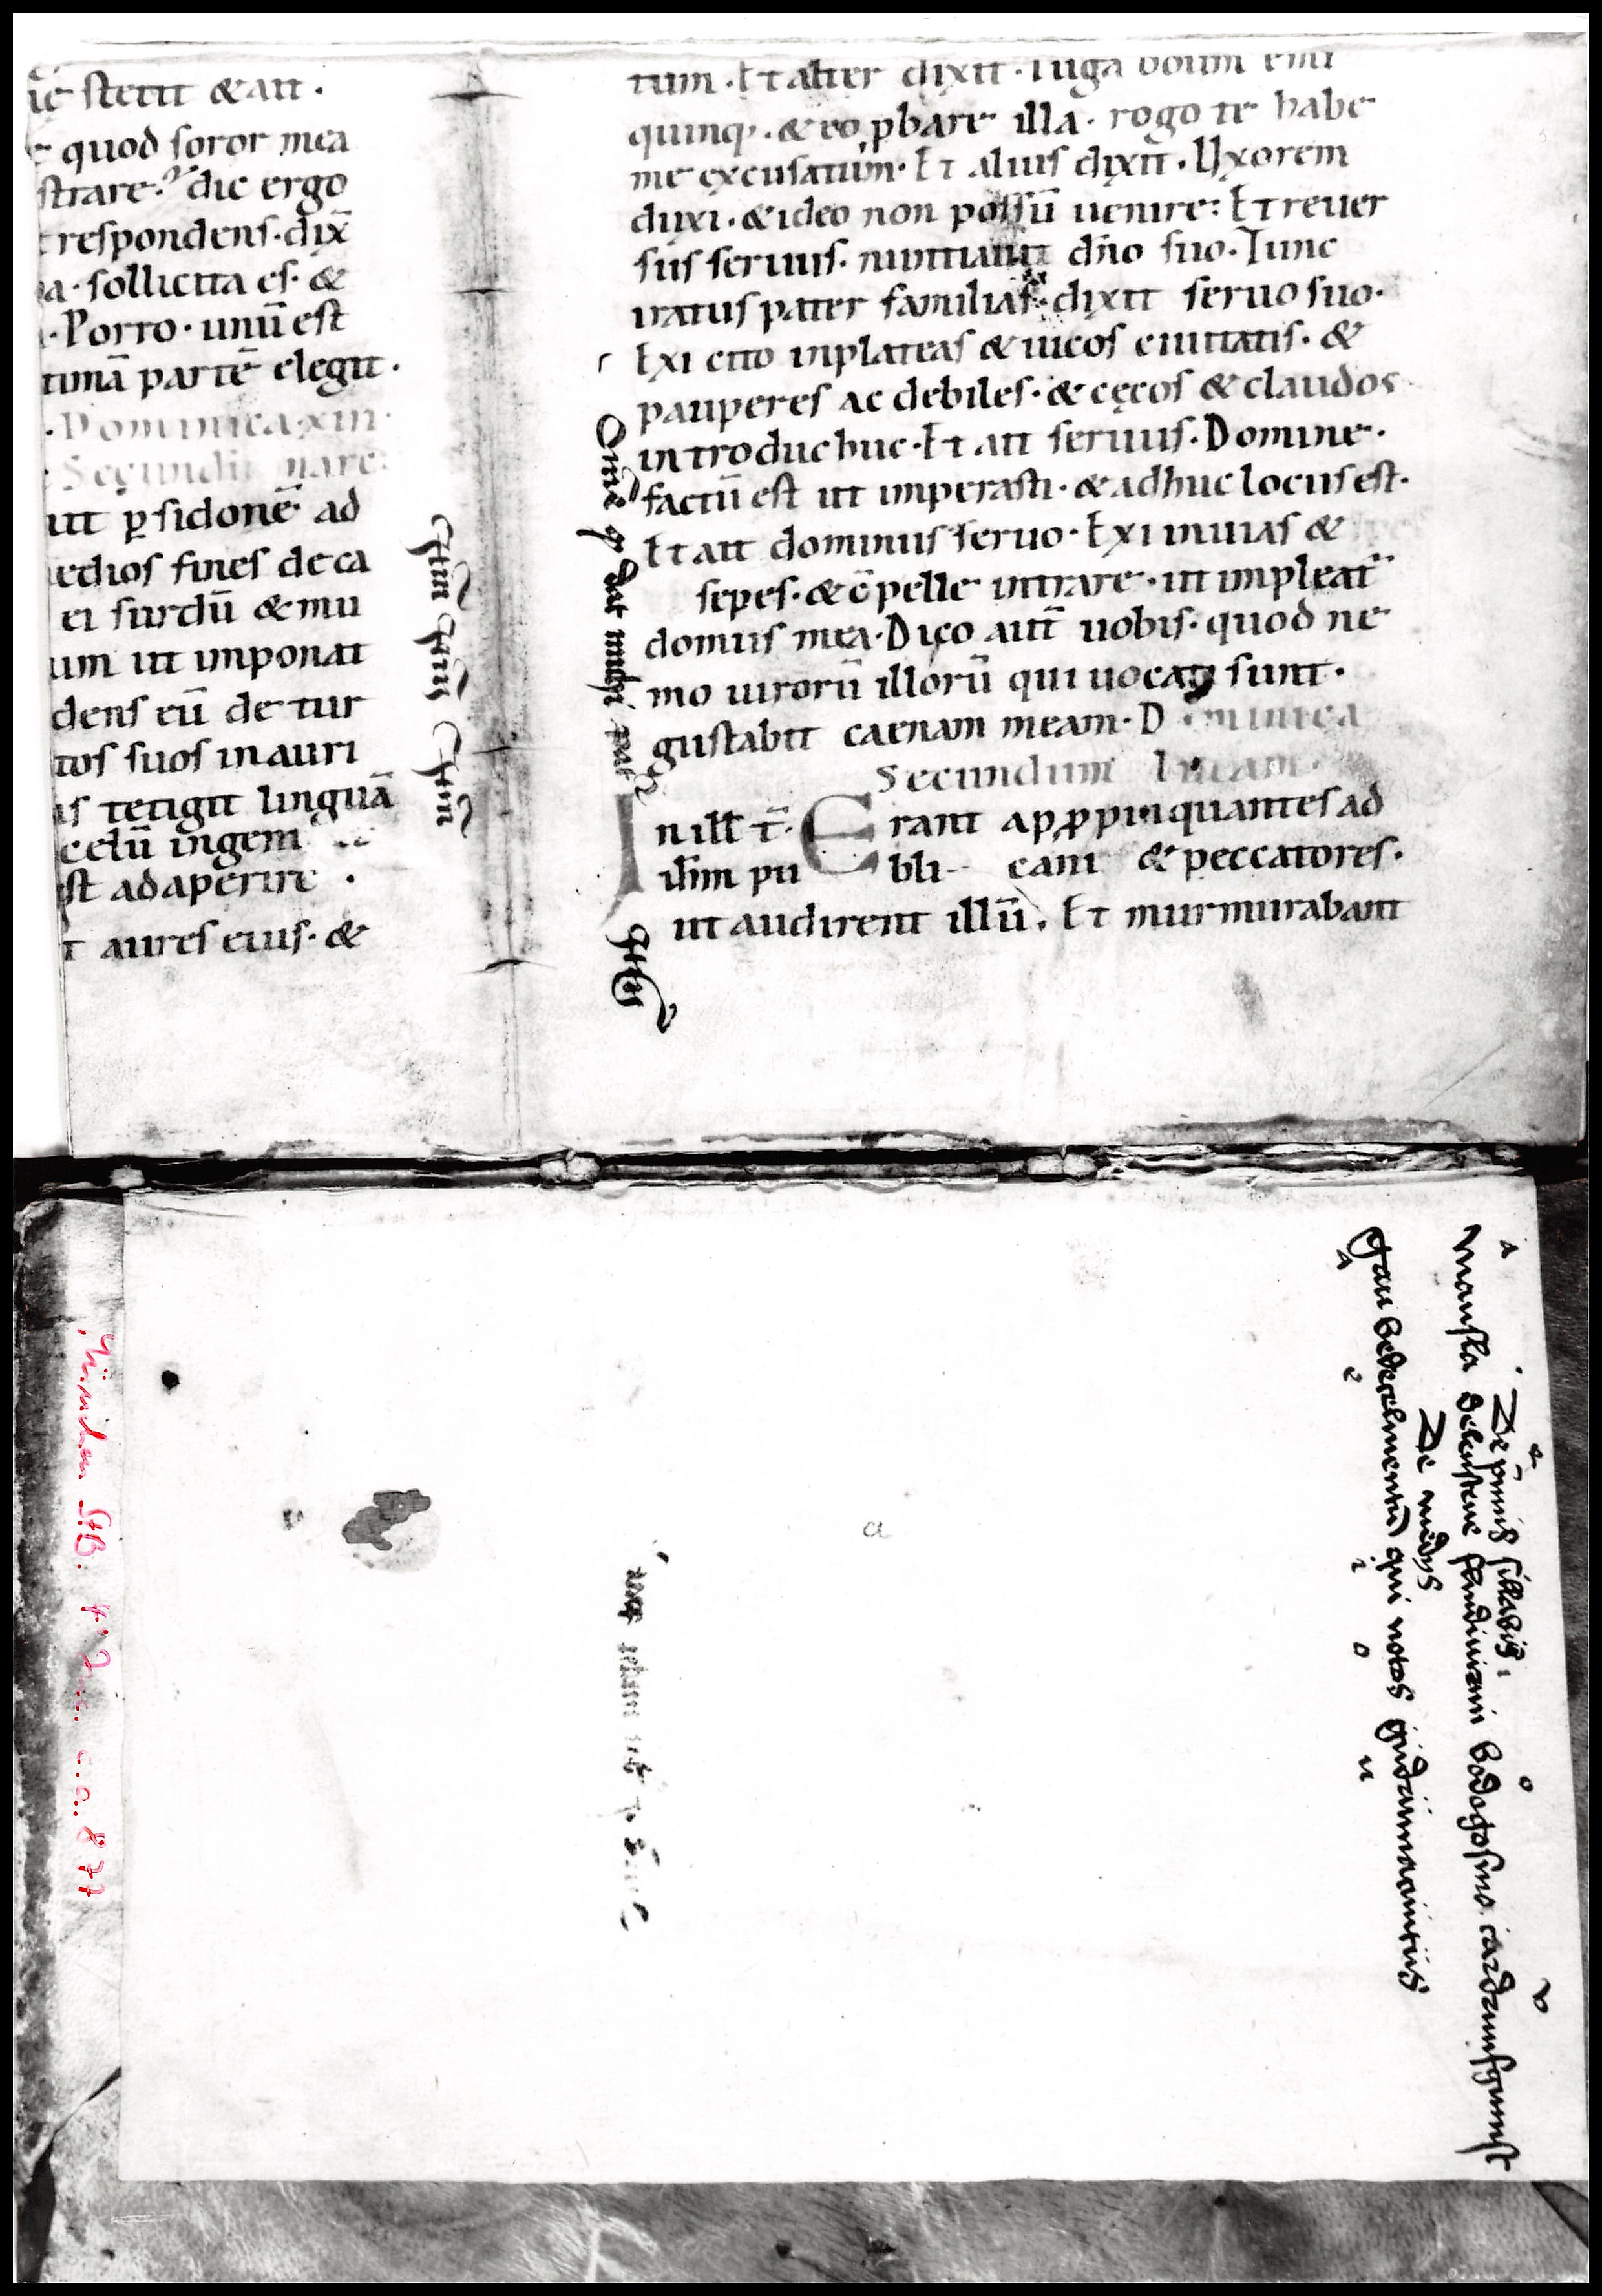 stetit & ait.
quod soror mea
strare. dic ergo
respondens. dix̄
a. sollicita es. &
. Porro. unū est
timā partē elegit.
. Dominica xiii.
Secundū marc
ꝑ sidonē ad
edios fines deca
ei surdū & mu
um ut imponat
dens eū de tur
tos suos inauri
is tetigit linguā
celū ingem
st adaperire .
t aures eius. &
tum. Et alter dixit. Iuga boum emi
quinq;. & eo ꝓbare illa. rogo te habe
me excusatum. Et alius dixit. Uxorem
duxi. & ideo non possū uenire: Et reuer
sus seruus. nuntiauit dn̄o suo. Tunc
iratus pater familias. dixit seruo suo.
Exi cito inplateas & uicos ciuitatis. &
pauperes ac debiles. & cęcos & claudos
introduc huc. Et ait seruus. Domine.
factū est ut imperasti. & adhuc locus est.
Et ait dominus seruo. Exi inuias &
sepes. & cōpelle intrare. ut impleat̄
domus mea. Dico aut̄ uobis. quod ne
mo uirorū illorū qui uocati sunt.
gustabit caenam meam. Dominica
Secundum lucam.
In ill̄ t̄. Erant apꝓpinquantes ad
ih̄m publicani & peccatores.
ut audirent illū. Et murmurabant
Om̄e qd dat michi pat
De prīis sillabis.
De medys
qui notos
a
a
e
i
o
u
München StB. 8 877